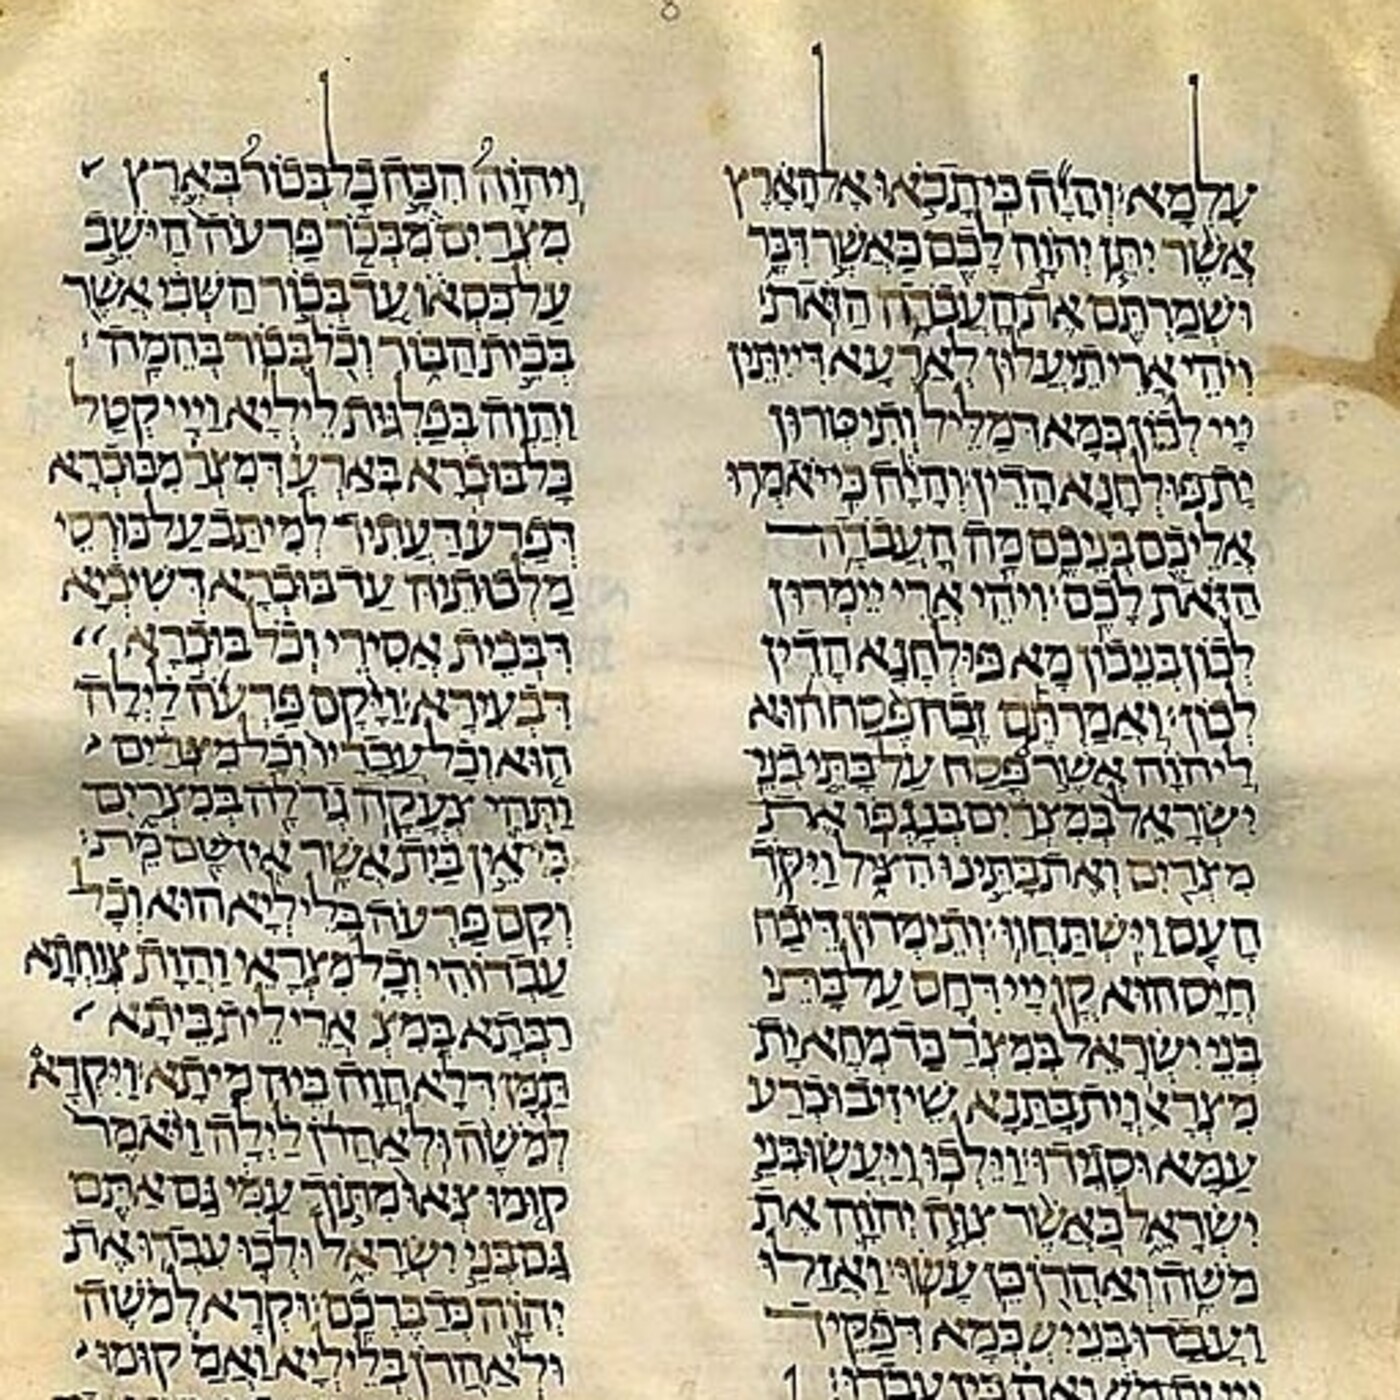 עלמא׃ והיה כי תבאו אל הארץ
אשר יתן יהוה לכם כאשר דבר
ושמרתם את העבדה הזאת׃
ויהי ארי תיעלון לארעא דייתין
ייי לכון כמא דמליל ותיטרון
ית פולחנא הדין׃ והיה כי יאמרו
אליכם בניכם מה העבדה
הזאת לכם׃ ויהי ארי יימרון
לכון בניכון מא פולחנא הדין
לכון׃ ואמרתם זבח פסח הוא
ליהוה אשר פסח על בתי בני
ישראל במצרים בנגפו את
מצרים ואת בתינו הציל ויקד
העם וישתחוו׃ ותימרון דיבח
חיס הוא קד ייי דרחם על בתי
בני ישראל במצר כד מחא ית
מצראי וית בתנא שיזיב וכרע
עמא וסגידו׃ וילכו ויעשו בני
ישראל כאשר צוה יהוה את
משה ואהרן כן עשו׃ ואזלו
ועבדו בני יש כמא דפקיד
כין עבדו׃
ויהוה הכה כל בכור בארץ
מצרים מבכר פרעה הישב
על כסאו עד בכור השבי אשר
בבית הבור וכל בכור בהמה׃
והוה בפלגות ליליא וייי קטל
כל בוכרא בארע דמצר מבוכרא
דפרע דעתיד למיתב על כורסי
מלכותיה עד בוכרא דשיביא
דבבית אסירי וכל בוכרא
דבעירא׃ ויקם פרעה לילה
הוא וכל עבדיו וכל מצרים
ותהי צעקה גדלה במצרים
כי אין בית אשר אין שם מת׃
וקם פרעה בליליא הוא וכל
עבדוהי וכל מצראי והות צוחתא
רבתא במצ ארי לית ביתא
תמן דלא הוה ביה מיתא׃ ויקרא
למשה ולאהרן לילה ויאמר
קומו צאו מתוך עמי גם אתם
גם בני ישראל ולכו עבדו את
יהוה כדברכם׃ וקרא למשה
ולאהרן בליליא ואמ קומו